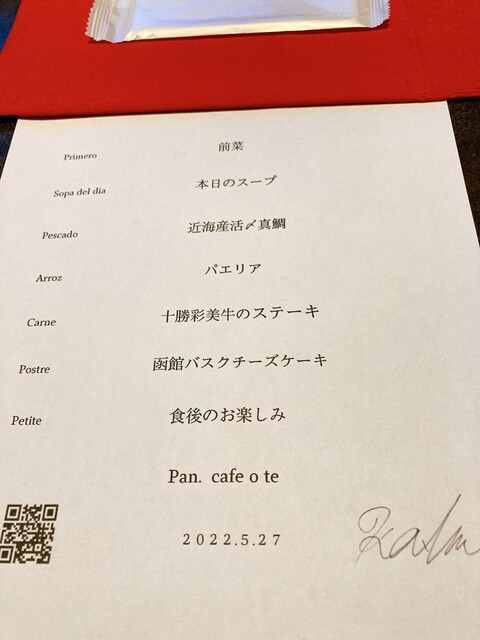 Primero 前菜
Sopa del dia 本日のスープ
Pescado 近海産活〆真鯛
Arroz パエリア
Carne 十勝彩美牛のステーキ
Postre 函館バスクチーズケーキ
Petite 食後のお楽しみ
Pan. cafe o te
2022.5.27